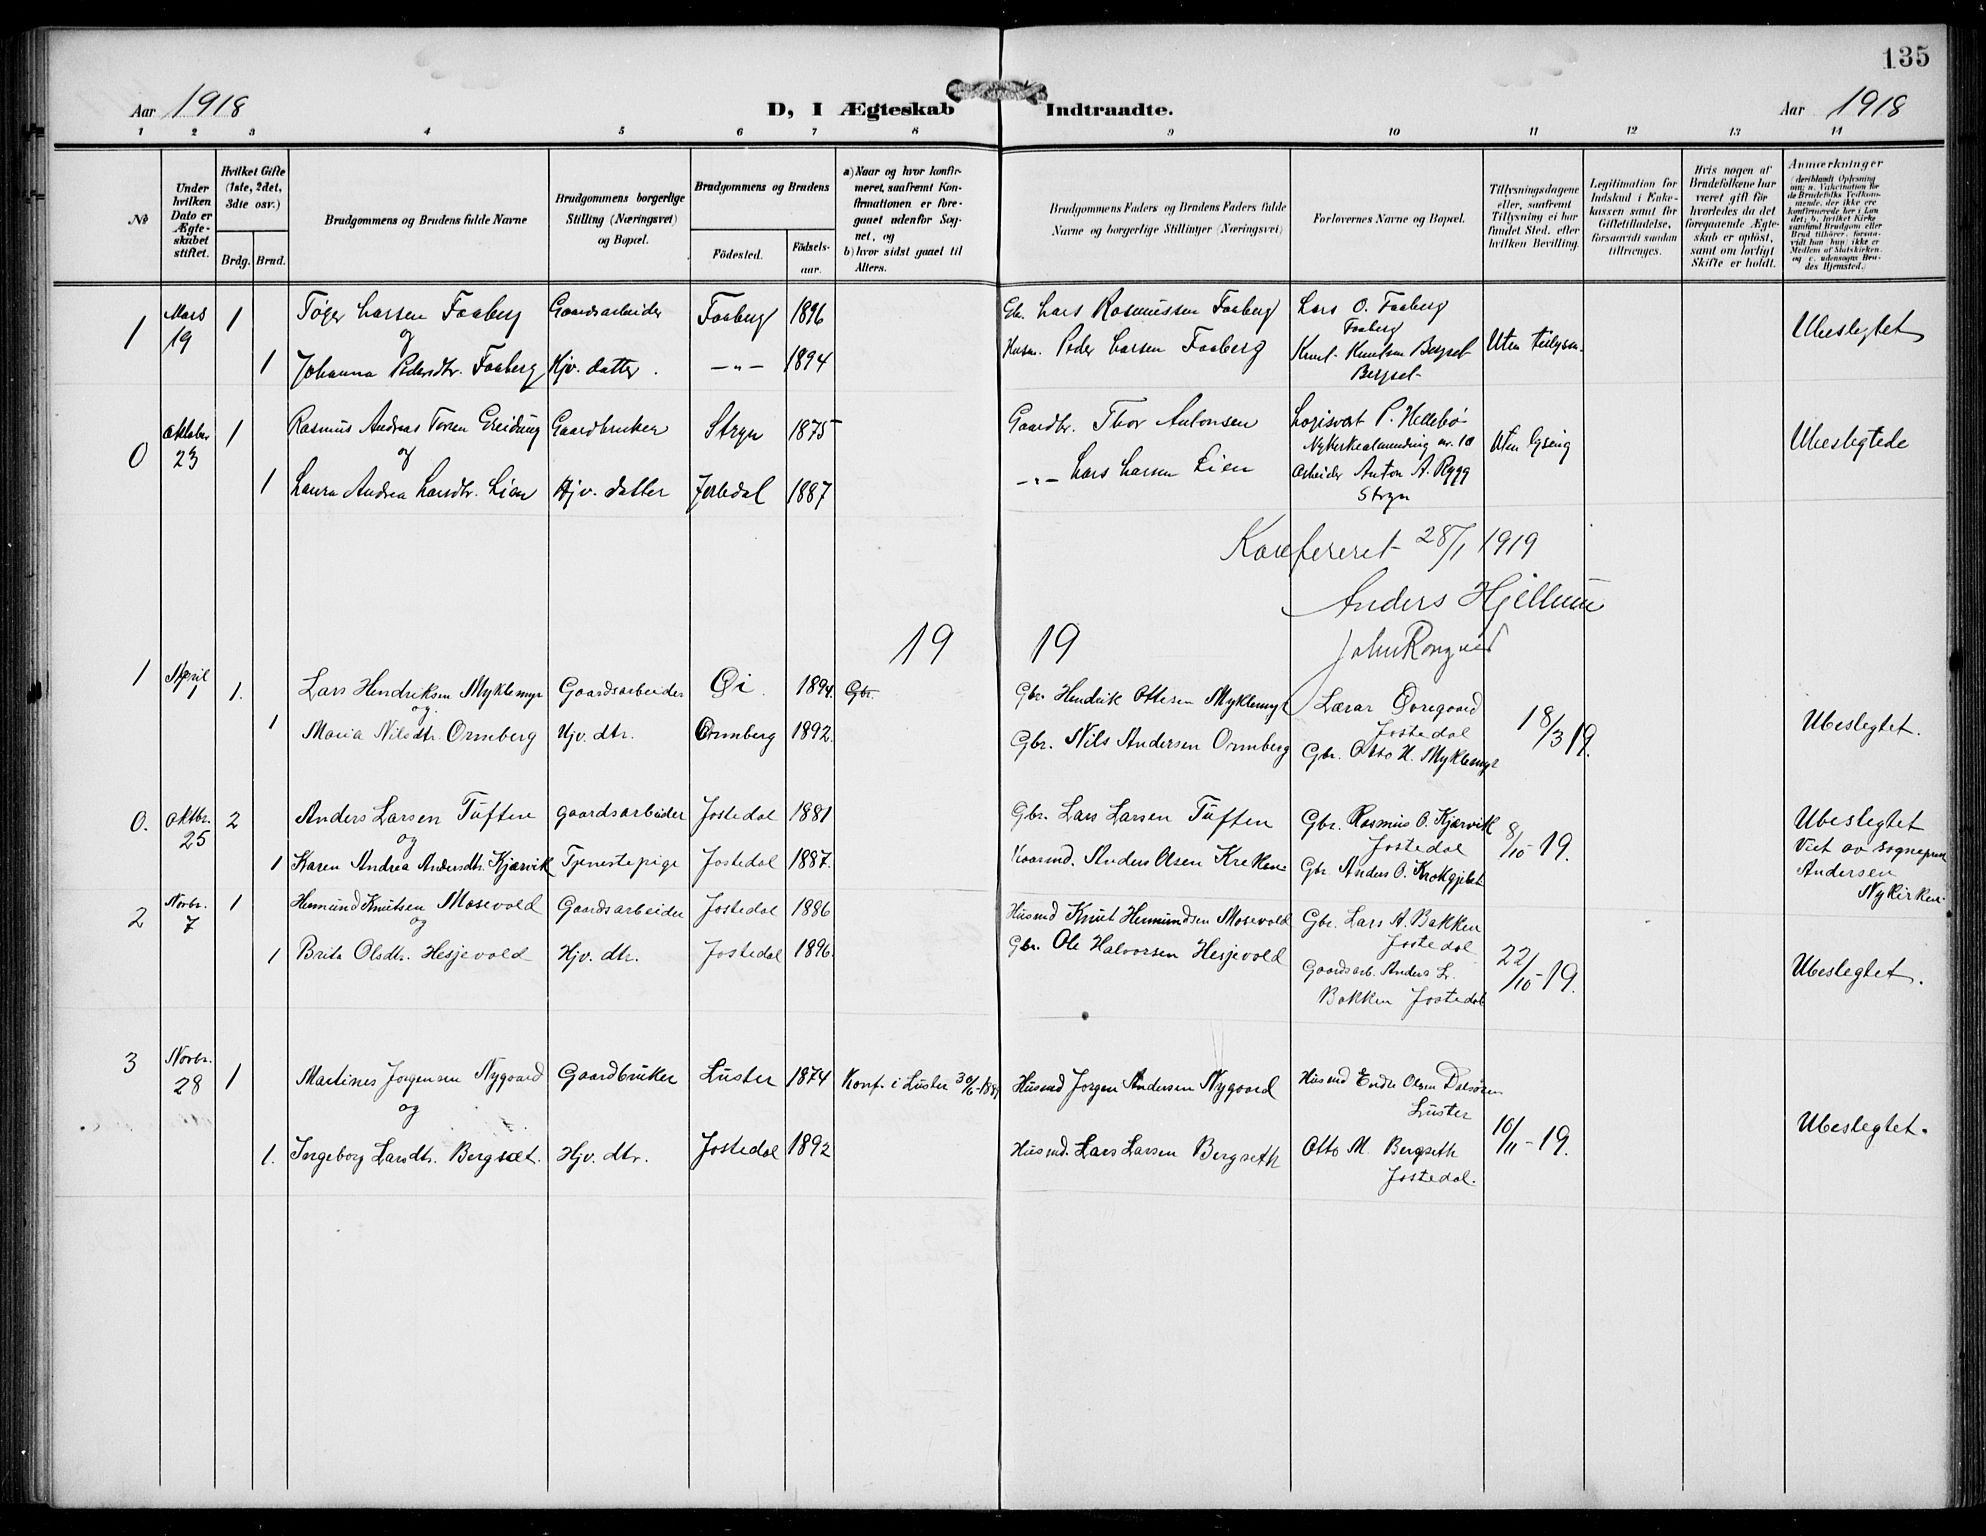 135
Aar 1918
D, I Ægteskab Indtraadte.
Aar 1918
1 2 3 4 5 6 7 8 9 10 11 12 13 14
No
Under hvilken Dato er Ægteskabet stiftet.
Hvilket Gifte (1ste, 2det, 3die osv.)
Brdg. Brud.
Brudgommens og Brudens fulde Navne
Brudgommens borgerlige Stilling (Næringsvei) og Bopæl.
Brudgommens og Brudens
Fødested.
Fødselsaar.
a) Naar og hvor konfirmeret, saafremt Konfirmationen er foregaaet udenfor Sognet, og
b) hvor sidst gaaet til Alters.
Brudgommens Faders og Brudens Faders fulde Navne og borgerlige Stillinger (Næringsvei)
Forlovernes Navne og Bopæl.
Tillysningsdagene eller, saafremt Tillysning ei har fundet Sted, efter hvilken Bevilling.
Legitimation for Indskud i Enkekassen samt for Giftetilladelse, forsaavidt saadan tiltrænges.
Hvis nogen af Brudefolkene har været gift før hvorledes da det foregaaende Ægteskab er opløst, samt om lovligt Skifte er holdt.
Anmærkninger (deriblandt Oplysning om: a. Vaccination for de Brudefolks Vedkommende, der ikke ere konfirmerede her i Landet; b. hvilket Kirkesamfund Brudgom eller Brud tilhører, forsaavidt han, hun ikke er Medlem af Statskirken, og c. udensogns Brudes Hjemsted.)
1 Mars 19 1 Tøger Larsen Faaberg Gaardsarbeider Faaberg 1896 Gbr. Lars Rasmussen Faaberg Lars O. Faaberg
og Faaberg Ubeslegtet
1 Johanna Pedersdtr. Faaberg Hjv. datter. —„— 1894 Husm. Peder Larsen Faaberg Knut Knutsen Bergset Uten tillysn.
Bergset
0 Oktober 23 1 Rasmus Andreas Torsen Greidung Gaardbruker Stryn 1875 Gaardbr. Thor Antonsen Logisvært P. Hellebø
og Nykerkealmending nr. 10 Uten lysing Ubeslegtede
1 Laura Andrea Larsdtr. Lien Hjv. datter Jostedal 1887 —„— Lars Larsen Lien Arbeider Anton A. Rygg
Stryn
Konfereret 28/1 1919
Anders Hjellum
19 19
1 April 1 1. Lars Hendriksen Myklemyr Gaardsarbeider Øi. 1894. Gbr. Gbr. Hendrik Ottesen Myklemyr Lærar Øvregaard
og. Jostedal 18/3 19. Ubeslegtet.
1 Maria Nilsdtr. Ormberg Hjv. dtr. Ormberg 1892. Gbr. Nils Andersen Ormberg Gbr. Otto H. Myklemyr
0. Oktbr. 25 2 Anders Larsen Tuften gaardsarbeider Jostedal 1881 Gbr. Lars Larsen Tuften Gbr. Rasmus O. Kjærvik
og Jostedal 8/10-19. Ubeslegtet
1 Karen Andrea Andersdtr. Kjærvik Tjenestepige Jostedal 1887. Anders Olsen Kreken Gbr. Anders O. Krokgjelet
Viet av sognepr.
Andersen
Nykirken.
2 Novbr. 7 1 Hermund Knutsen Mosevold Gaardsarbeider Jostedal 1886 Husmd Knut Hermundsen Mosevold Gbr. Lars A. Bakken
og Jostedal
1 Brita Olsdtr. Hesjevold Hjv. dtr. Jostedal 1896. Gbr. Ole Halvorsen Hesjevold Gaardsarb. Anders L. 22/10-19. Ubeslegtet.
Bakken Jostedal
3 Novbr. 28 1 Martines Jørgensen Nygaard Gaardbruker Luster 1874 Konf. i Luster 30/6- Husmd Jørgen Andersen Nygaard Husmd Endre Olsen Dalsøren
og Luster
1. Ingeborg Larsdtr. Bergsæt. Hjv. dtr. Jostedal 1892 Husmd. Lars Larsen Bergseth Otto M. Bergseth 10/11-19. Ubeslegtet.
Jostedal.